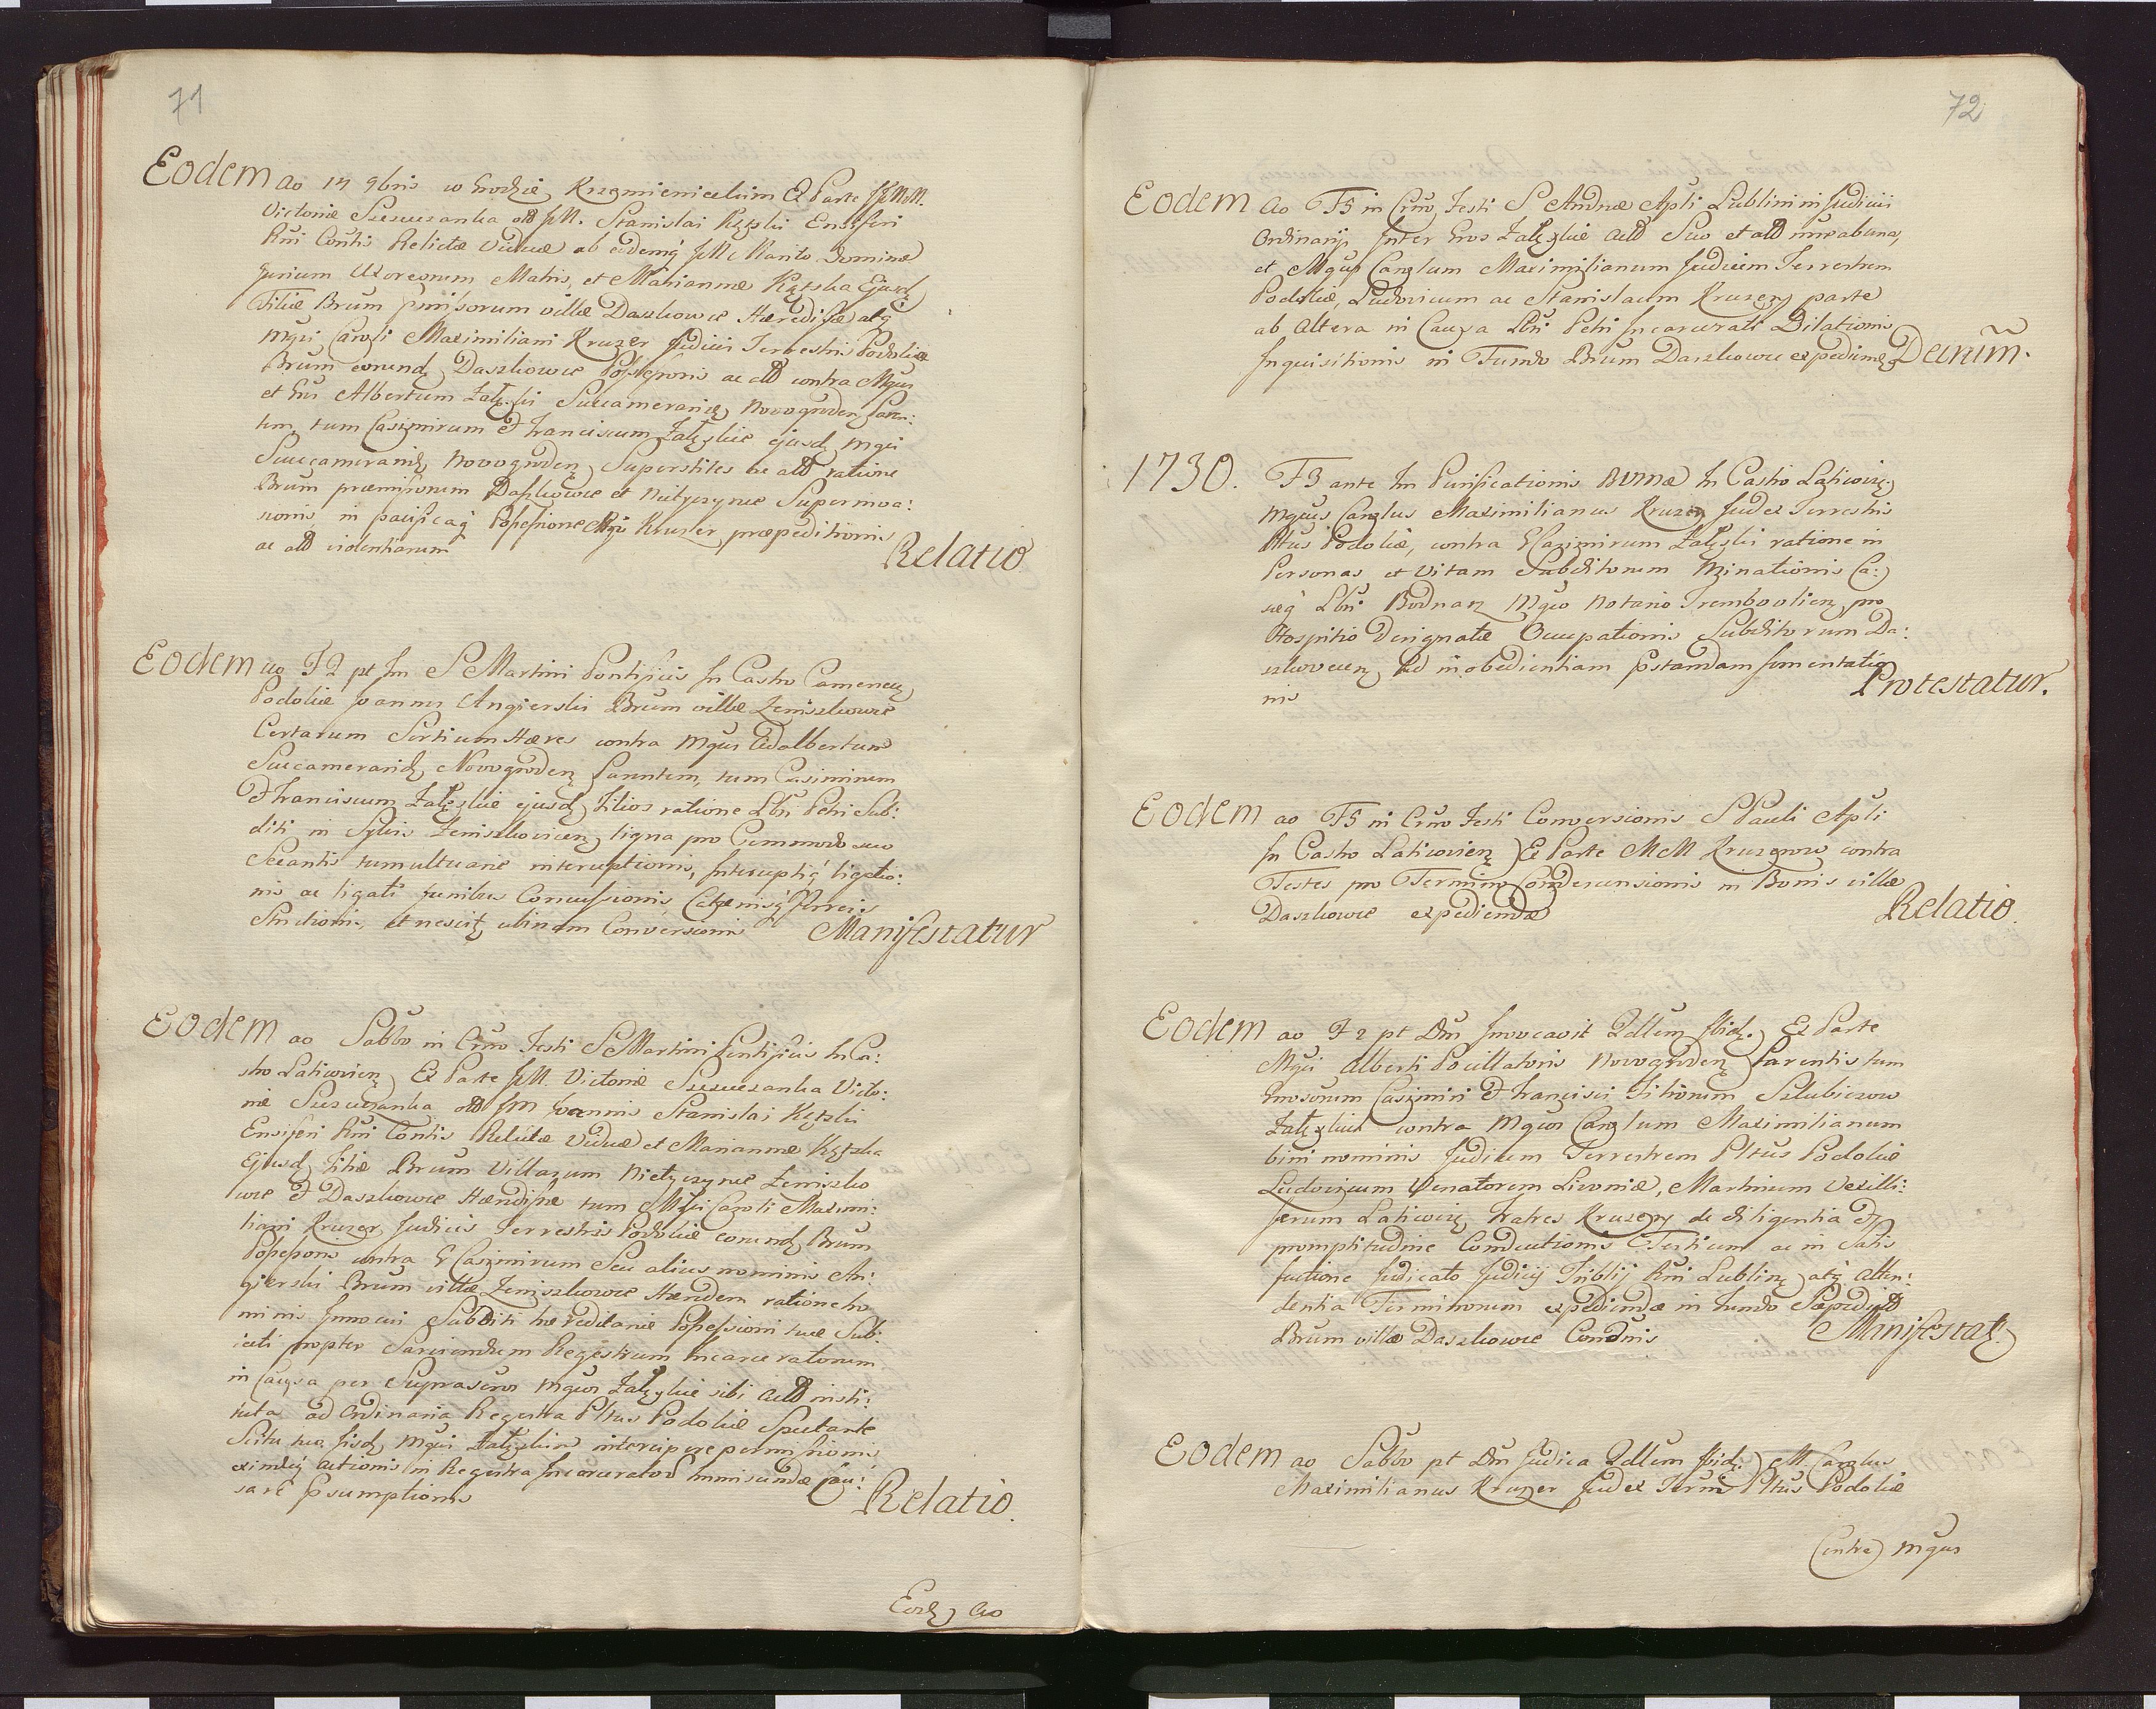 71
Eodem ao 14 9bris w Grodzie Krzemienieckim Ex Parte JJMM.
Victoriæ Szeszczanka old JM. Stanislai Kątski Ensiferi
Rni Contis Relictæ Viduæ ab eodemq JM Marito Dominæ
jurium Uxoreorum, Matris, et Mariannæ Kątska Ejusd
Filiæ Brum pmissorum villæ Daszkowce Hæredissæ atq
Mgci Caroli Maximiliani Kruzer Judicis Terrestris Podoliæ
Brum eorund Daszkowce Possessoris ac ald contra Mgcum
et Grm Albertum Załęski Succameranid Novogroden Paren:
tem, tum Casimirum & Franciscum Załęskie ejusd Mgci
Succameranid Novogroden Superstites ac ald ratione
Brum præmissorum Daszkowce et Nietyczynce Superinva:
sionis, in pacificaq Possessione Mgci Kruzer præpeditionis
ac ald violentiarum
Relatio
Eodem ao F2 pt Fm S Martini Pontificis In Castro Camenecen
Podoliæ Joannes Angierski Brum villæ Zeniszkowce
Certarum Sortium Hæres contra Mgcum Adalbertum
Succameranid Novogroden Parentem, tum Casimirum
& Franciscum Załęskie ejusd Filios ratione Lbri Petri Sub:
diti in Sylvis Zeniszkoviecen ligna pro Commodo suo
Secantis tumultuarie interuptionis, Interuptiq ligatio:
nis ac ligati funibus Concussionis, Catenisq Ferreis
Strictionis, et nescit ubinam Conversionis
Manifestatur
Eodem ao Sabbo in Crno Festi S Martini Pontificis In Ca:
stro Laticovien Ex Parte JM. Victoriæ Szeszczanka Victo:
riæ Szeszczanka old JM Joannis Stanislai Kątski
Ensiferi Rni Contis Relictæ Viduæ et Mariannæ Kątska
Ejusd Filiæ Brum Villarum Nietyczynce Zeniszko
wce & Daszkowce Hæredissæ tum Mgci Caroli Maximi:
liani Kruzer Judicis Terrestris Podoliæ eorund Brum
Possessoris contra G Casimirum Seu alius nominis An:
gierski Brum villæ Zeniszkowce Hæredem ratione ho
minis Innocui Subditi hæreditariæ Possessioni suæ Sub:
iecti propter Sarciendum Regestrum Incarceratorum
in Causa per Suprascros Mgcos Załęskie sibi Actd insti:
tuta ad Ordinaria Regestra Pltus Podoliæ Spectante
Scitu suo Iisd Mgcis Załęskim intercipere permissionis
eximdeq actionis in Regestra Incarceratord immiscendæ Cau:
sare psumptionis
Relatio.
Eod ao
72
Eodem ao F5 in Crno Festi S Andreæ Apli Lublini in Judiciis
Ordinarijs Inter Gros Załęskie Actd Suo et ald nreabuna,
et Mgcum Carolum Maximilianum Judicem Terrestrem
Podoliæ, Ludovicum ac Stanislaum Kruzery parte
ab altera in Causa Lbri Petri Incarcerati Dilationis
Inquisitionis in Fundo Brum Daszkowce expediendæ
Decretum.
1730. F3 ante Fm Purificationis BVMæ In Castro Laticovien
Mgcus Carolus Maximilianus Kruzer Judex Terrestris
Pltus Podoliæ, contra G Casimirum Załęski ratione in
Personas et Vitam Subditorum Minationis Ca:
sæq Lbri Bodnar Mgco Notario Trembovlien pro
Hospitio Designatæ Occupationis Subditorum Da:
szkoviecen ad inobedientiam pstandam fomentatio
nis
Protestatur.
Eodem ao F5 in Crno Festi Conversionis S Pauli Apli
In Castro Laticovien Ex Parte MM Kruzerow contra
Testes pro Termino Condescensionis in Bonis villæ
Daszkowce expediendæ
Relatio.
Eodem ao F2 pt Dm Invocavit Qdlem Ibid. Ex Parte
Mgci Alberti Pocillatoris Novogroden Parentis tum
Grosorum Casimiri & Francisci Filiorum Szlubiczow
Załęskich contra Mgcos Carolum Maximilianum
bini nominis Judicem Terrestrem Pltus Podoliæ
Ludovicum Venatorem Livoniæ, Martinum Vexilli:
ferum Laticovien Fratres Kruzery de diligentia &
promptitudine Conductionis Testium ac in Satis
factione Judicato Judicij Triblij Rni Lublinen atq atten:
dentia Terminorum expediendæ in Fundo Sæpedictd
Brum villæ Daszkowce Condnis
Manifestat.
Eodem ao Sabbo pt Dm Judica Qdlem Ibid. M. Carolus
Maximilianus Kruzer Judex Terris Pltus Podoliæ
Contra Mgcus